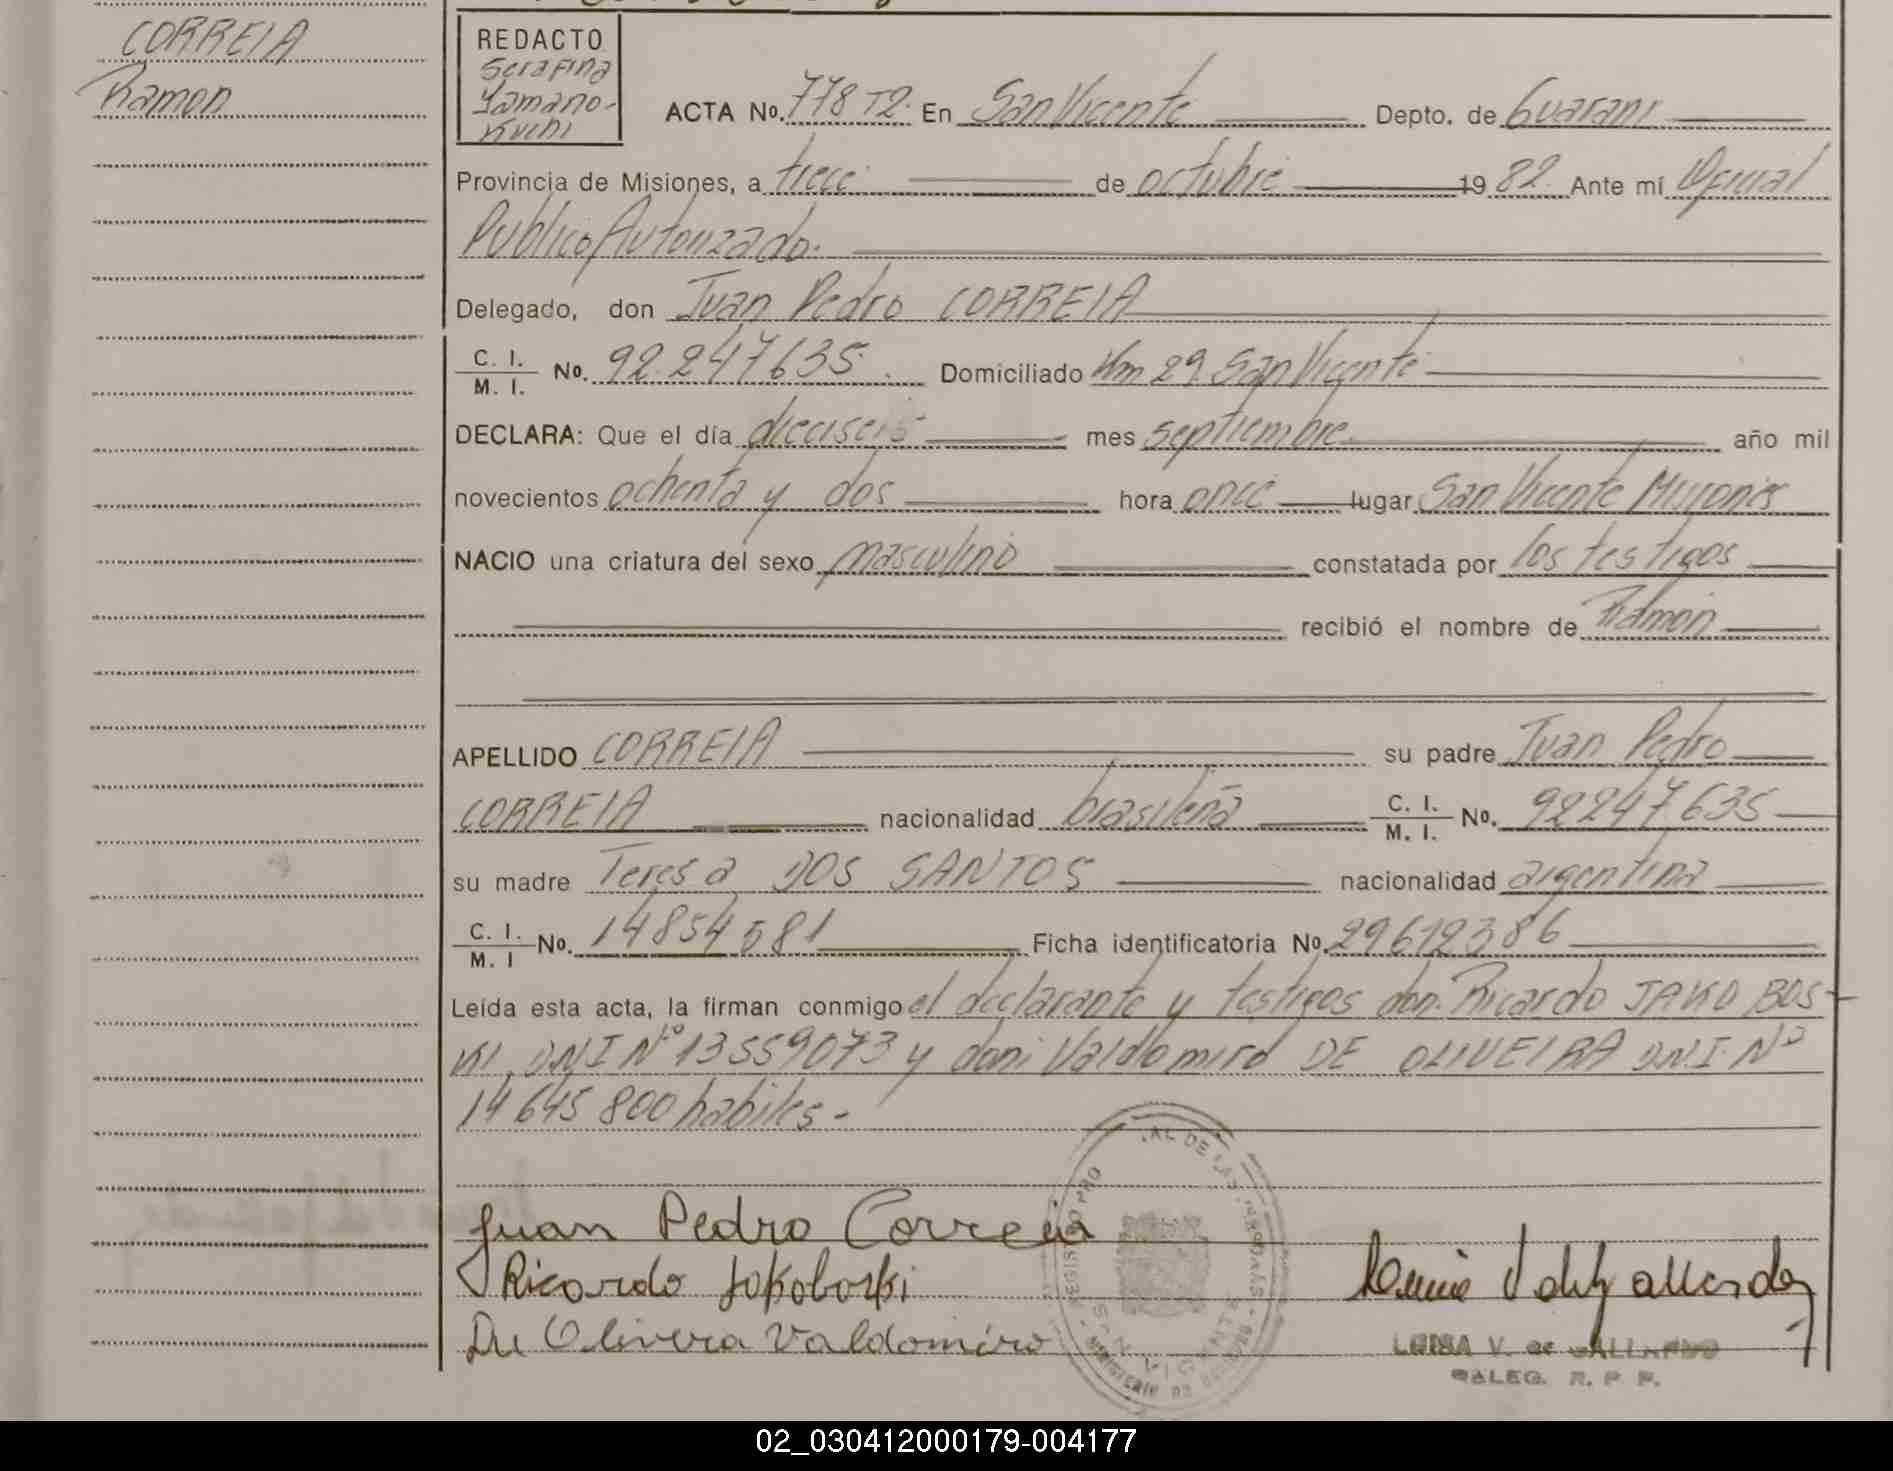 CORREIA
Ramon
REDACTO
Serafina
Yamano-
Kuchi
ACTA No. 778 T2. En San Vicente Depto. de Guarani
Provincia de Misiones, a trece de octubre 1982. Ante mí Oficial
Publico Autorizado.
Delegado, don Juan Pedro CORREIA
C. I.
M. I. No. 92.247635. Domiciliado Km 29. San Vicente
DECLARA: Que el día dieciseis mes septiembre año mil
novecientos ochenta y dos hora once lugar San Vicente Misiones
NACIO una criatura del sexo masculino constatada por los testigos
recibió el nombre de Ramón
APELLIDO CORREIA su padre Juan Pedro
CORREIA nacionalidad brasileña C. I. M. I. No. 92247635
su madre Teresa DOS SANTOS nacionalidad argentina
C. I. M. I No. 14854581 Ficha identificatoria No. 29612386
Leída esta acta, la firman conmigo el declarante y testigos don. Ricardo JAKO BOS-
KI DNI Nº 13559073 y don Valdomiro DE OLIVEIRA D.N.I. Nº
14645800 habiles-
Juan Pedro Correia
Ricardo Jokoboski
De Olivera Valdomiro
LUISA V. de GALLARDO
DELEG. R. P. P.
02_030412000179-004177